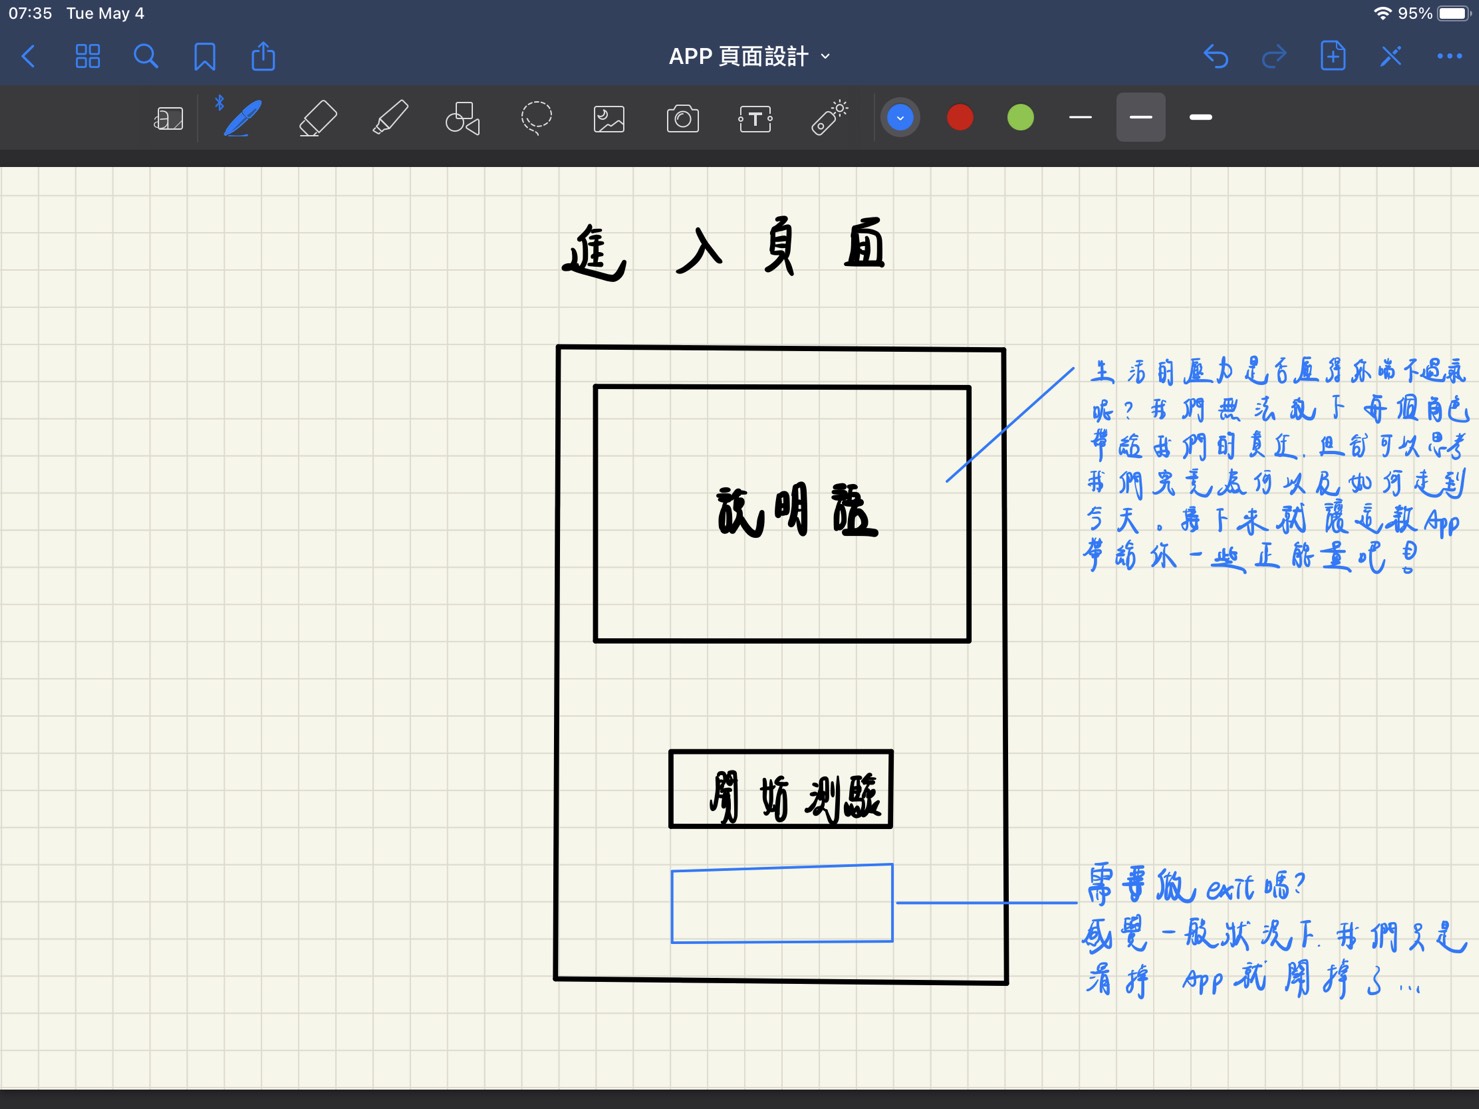 07:35 Tue May 4
95%
APP 頁面設計
進入頁面
生活的壓力是否壓得你喘不過氣
呢?我們無法放下每個角色
帶給我們的責任,但卻可以思考
我們究竟為何以及如何走到
今天。接下來就讓這款App
帶給你一些正能量吧!
說明語
開始測驗
需要做exit嗎?
感覺一般狀況下,我們只是
滑掉App就關掉了...